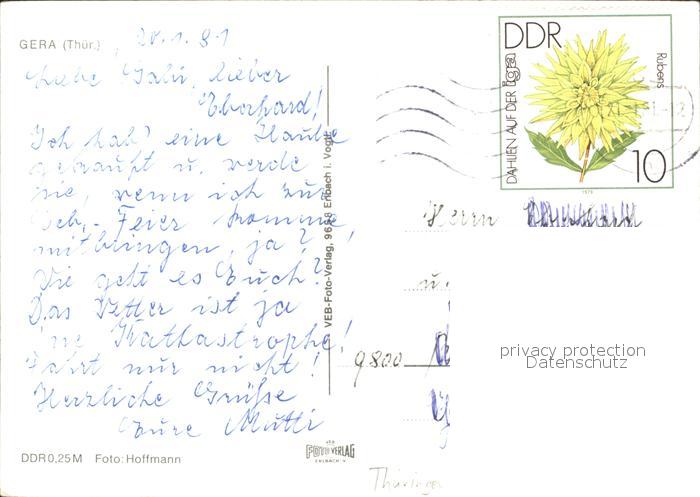 GERA (Thür.), 20.1.81
Liebe Gabi, lieber
Eberhard!
Ich hab' eine Haube
gekauft u. werde
sie, wenn ich zur
Geb.- Feier komme,
mitbringen, ja?
Wie geht es Euch?
Das Wetter ist ja
'ne Kathastrophe!
Fahrt nur nicht!
Herzliche Grüße
Eure Mutti
DDR 0,25 M Foto: Hoffmann
VEB-Foto-Verlag, 9658 Erlbach i. Vogtl.
VEB
FOTO VERLAG
ERLBACH · V
DDR
DAHLIEN AUF DER iga
Rubens
10
1979
Herrn
u.
9800
privacy protection
Datenschutz
Thüringen